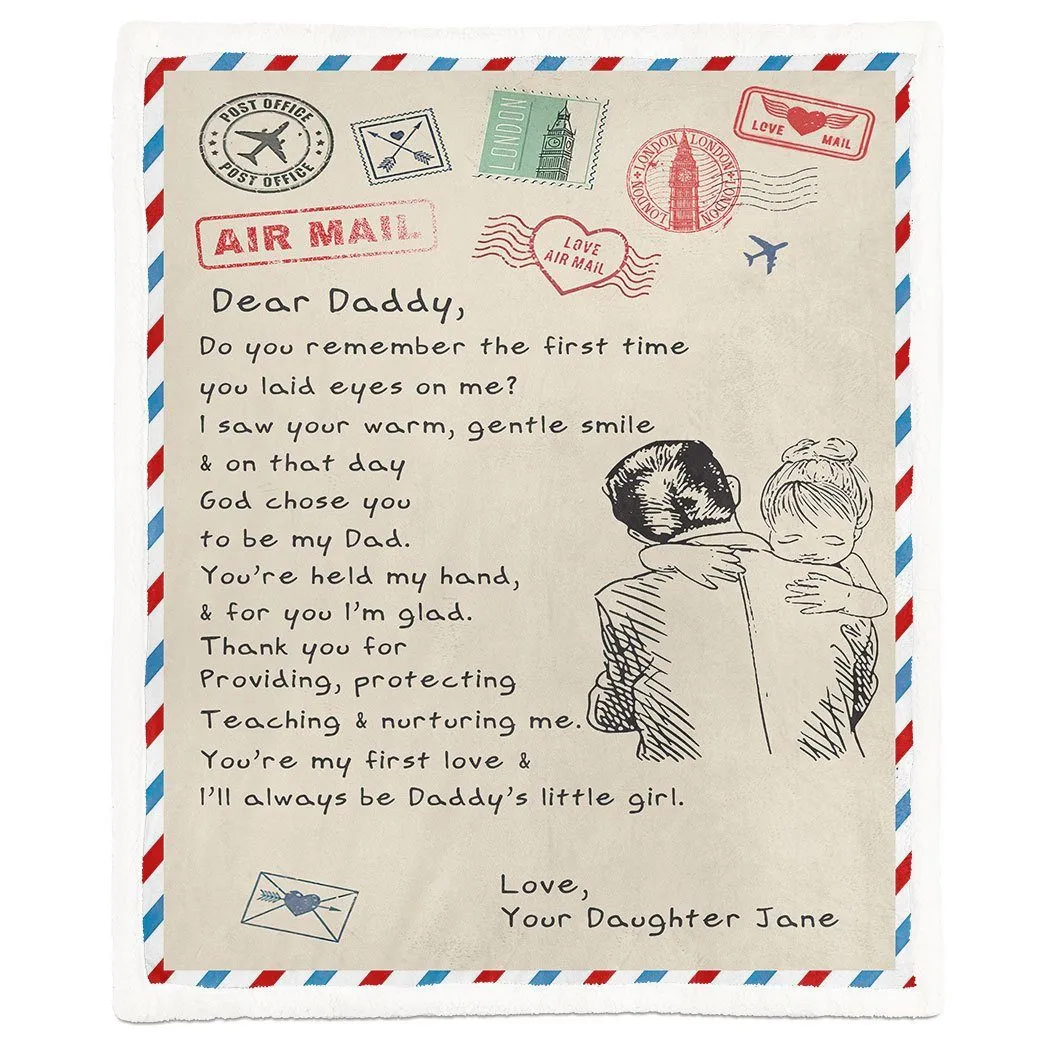 POST OFFICE
POST OFFICE
LONDON
LONDON LONDON
LONDON LONDON
LOVE
MAIL
AIR MAIL
LOVE
AIR MAIL
Dear Daddy,
Do you remember the first time
you laid eyes on me?
I saw your warm, gentle smile
& on that day
God chose you
to be my Dad.
You're held my hand,
& for you I'm glad.
Thank you for
Providing, protecting
Teaching & nurturing me.
You're my first love &
I'll always be Daddy's little girl.
Love,
Your Daughter Jane